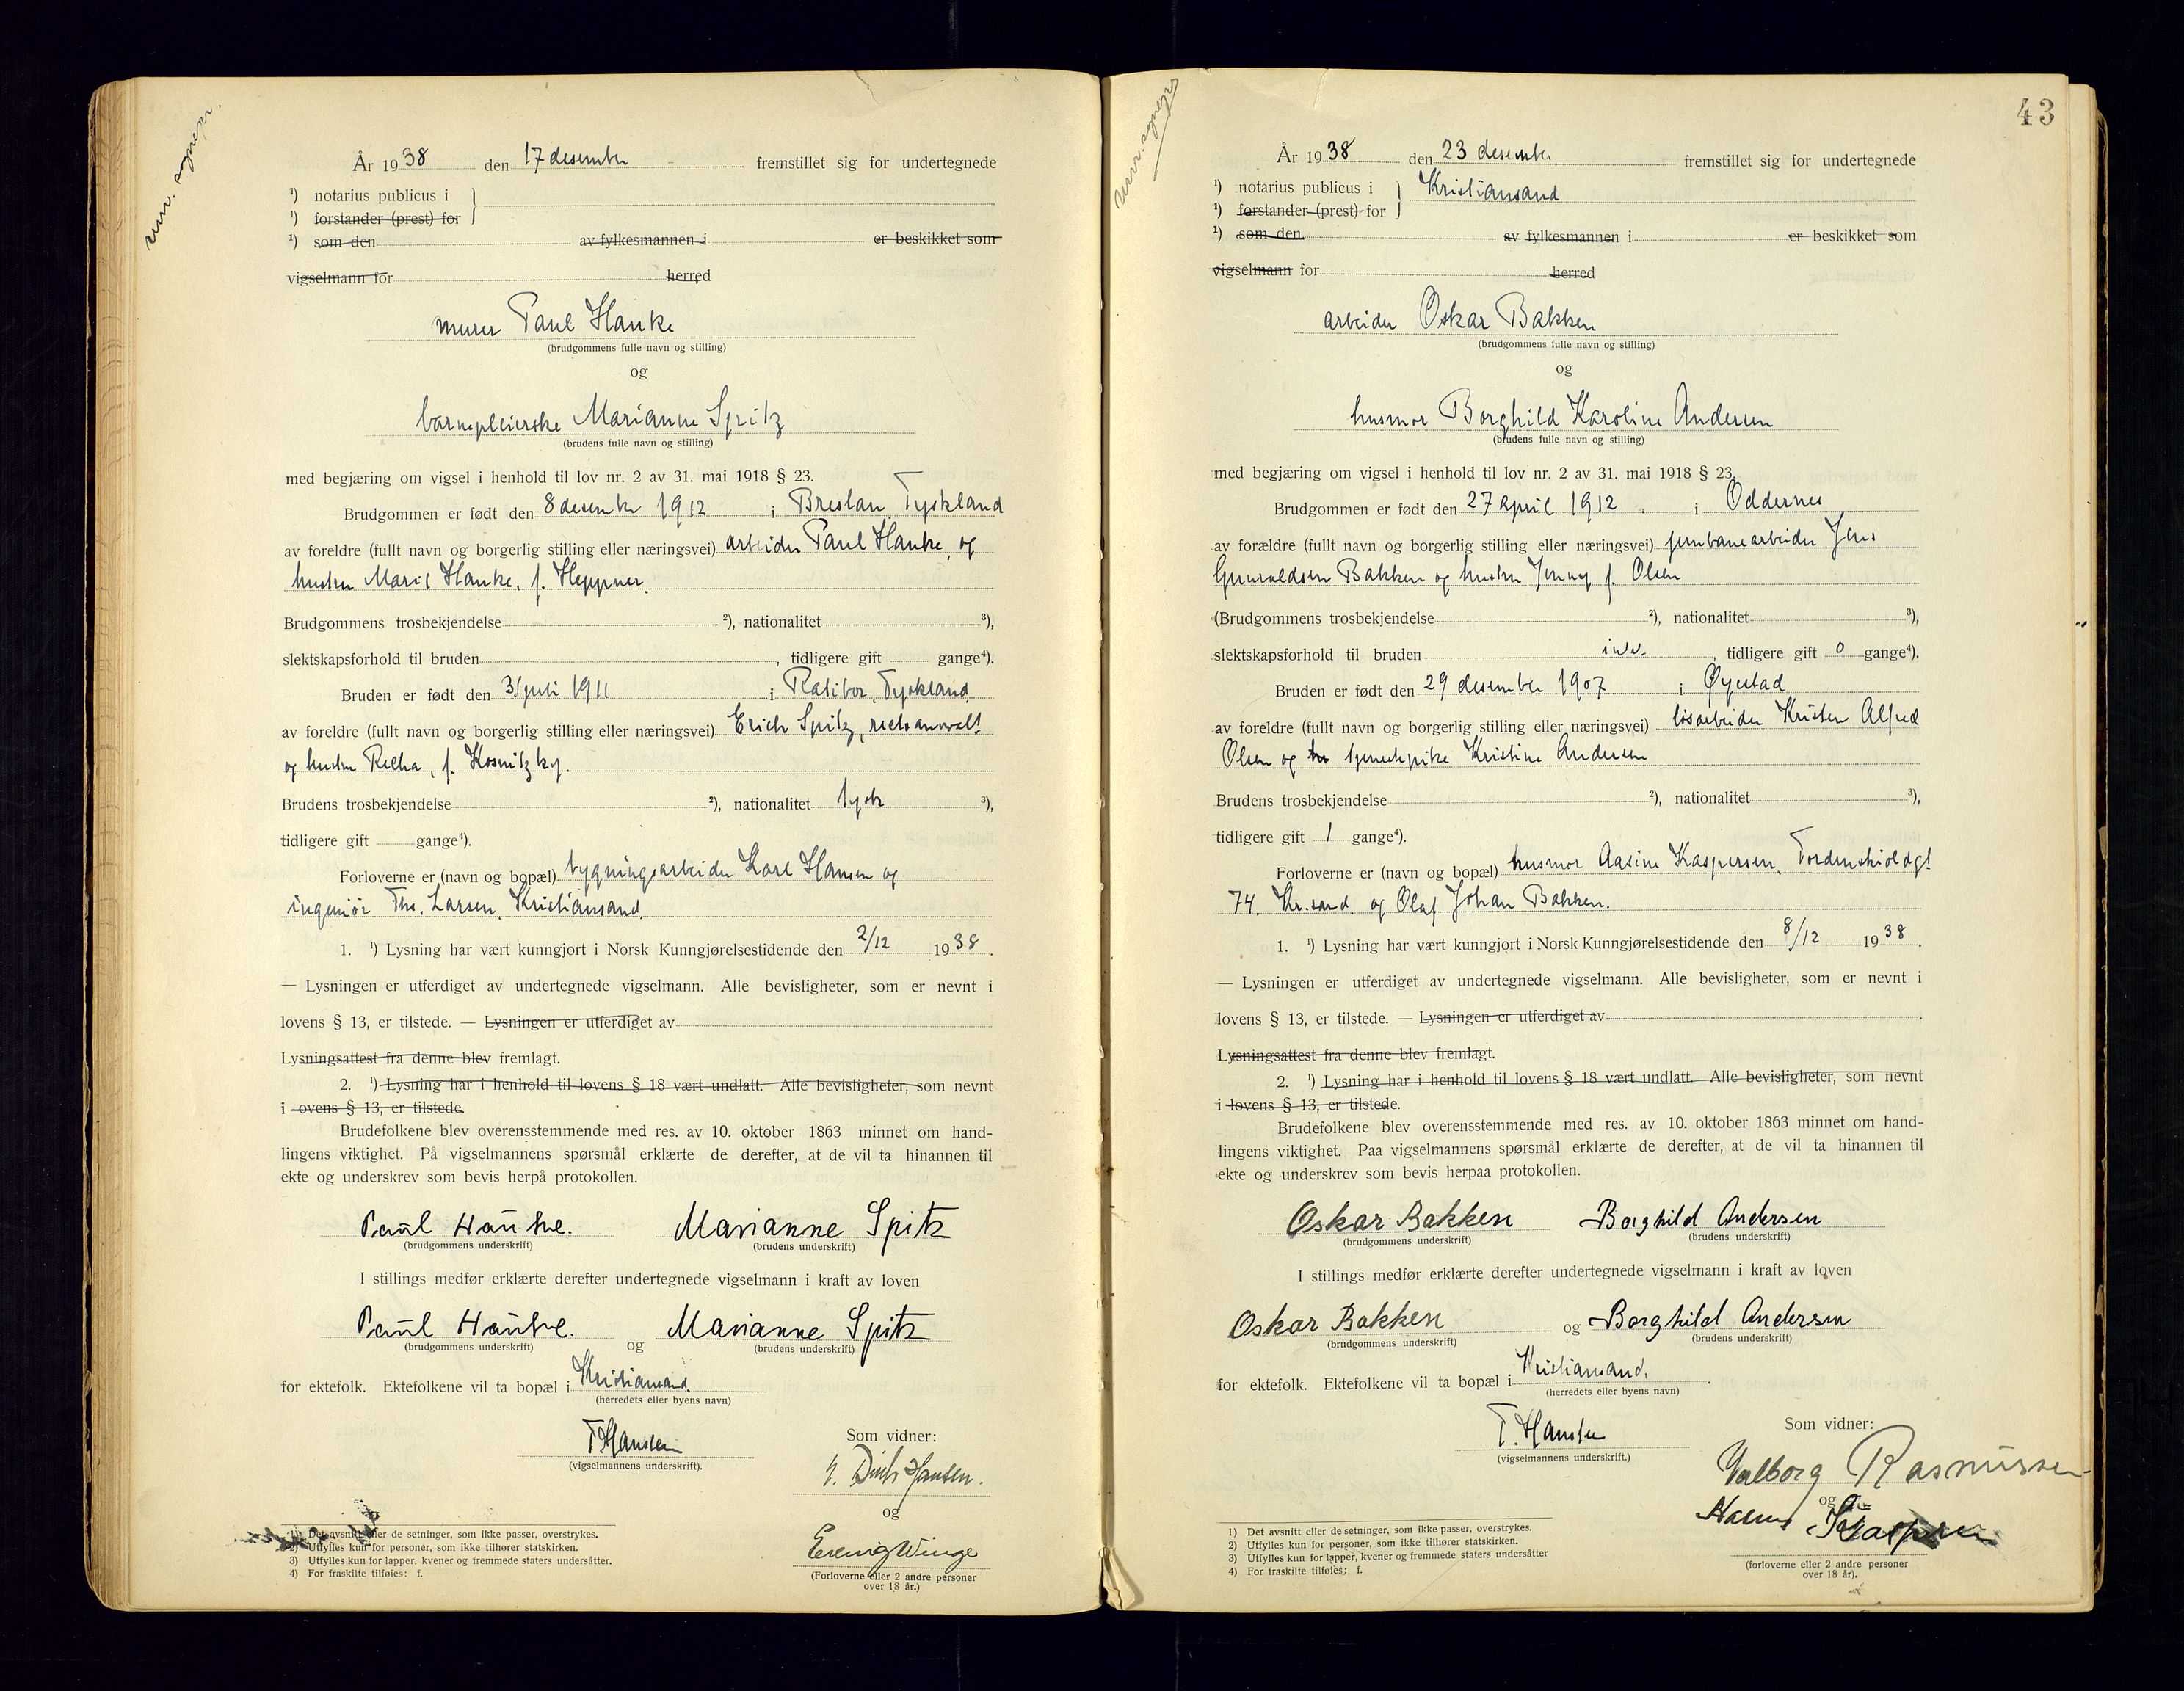 År 1938 den 17 desember fremstillet sig for undertegnede
¹) notarius publicus i
¹) forstander (prest) for
¹) som den av fylkesmannen i er beskikket som
vigselmann for herred
murer Paul Hanke
(brudgommens fulle navn og stilling)
og
barnepleierske Marianne Spitz
(brudens fulle navn og stilling)
med begjæring om vigsel i henhold til lov nr. 2 av 31. mai 1918 § 23.
Brudgommen er født den 8 desember 1912 i Breslau, Tyskland
av foreldre (fullt navn og borgerlig stilling eller næringsvei) arbeider Paul Hanke, og
hustru Marie Hanke, f. Heppner.
Brudgommens trosbekjendelse ²), nationalitet ³),
slektskapsforhold til bruden , tidligere gift gange⁴).
Bruden er født den 31 juli 1911 i Ratibor, Tyskland
av foreldre (fullt navn og borgerlig stilling eller næringsvei) Erich Spitz, rechtsanwalt
og hustru Recha, f. Kosnitzky.
Brudens trosbekjendelse ²), nationalitet tysk ³),
tidligere gift gange⁴).
Forloverne er (navn og bopæl) bygningsarbeider Karl Hansen og
ingeniør Ths. Larsen, Kristiansand.
1. ¹) Lysning har vært kunngjort i Norsk Kunngjørelsestidende den 2/12 1938.
— Lysningen er utferdiget av undertegnede vigselmann. Alle bevisligheter, som er nevnt i
lovens § 13, er tilstede. — Lysningen er utferdiget av
Lysningsattest fra denne blev fremlagt.
2. ¹) Lysning har i henhold til lovens § 18 vært undlatt. Alle bevisligheter, som nevnt
i ovens § 13, er tilstede.
Brudefolkene blev overensstemmende med res. av 10. oktober 1863 minnet om hand-
lingens viktighet. På vigselmannens spørsmål erklærte de derefter, at de vil ta hinannen til
ekte og underskrev som bevis herpå protokollen.
Paul Hanke. Marianne Spitz
(brudgommens underskrift) (brudens underskrift)
I stillings medfør erklærte derefter undertegnede vigselmann i kraft av loven
Paul Hanke. og Marianne Spitz
(brudgommens underskrift) (brudens underskrift)
for ektefolk. Ektefolkene vil ta bopæl i Kristiansand.
(herredets eller byens navn)
T Hansen
(vigselmannens underskrift).
Som vidner:
Hansen.
og
Winge
(Forloverne eller 2 andre personer
over 18 år.)
1) Det avsnitt eller de setninger, som ikke passer, overstrykes.
2) Utfylles kun for personer, som ikke tilhører statskirken.
3) Utfylles kun for lapper, kvener og fremmede staters undersåtter.
4) For fraskilte tilføies: f.
43
År 1938 den 23 desember fremstillet sig for undertegnede
¹) notarius publicus i Kristiansand
¹) forstander (prest) for
¹) som den av fylkesmannen i er beskikket som
vigselmann for herred
arbeider Oskar Bakken
(brudgommens fulle navn og stilling)
og
husmor Borghild Karoline Andersen
(brudens fulle navn og stilling)
med begjæring om vigsel i henhold til lov nr. 2 av 31. mai 1918 § 23.
Brudgommen er født den 27 april 1912 i Oddernes
av forældre (fullt navn og borgerlig stilling eller næringsvei) jernbanearbeider Jens
Gunvaldsen Bakken og hustru Jenny f. Olsen
(Brudgommens trosbekjendelse ²), nationalitet ³),
slektskapsforhold til bruden , tidligere gift 0 gange⁴).
Bruden er født den 29 desember 1907 i Øyestad
av foreldre (fullt navn og borgerlig stilling eller næringsvei) løsarbeider Kristen Alfred
Olsen og tjenestepike Kristine Andersen
Brudens trosbekjendelse ²), nationalitet ³),
tidligere gift 1 gange⁴).
Forloverne er (navn og bopæl) husmor Aasine Kaspersen, Tordenskioldgt
74, Kr.sand. og Olaf Johan Bakken.
1. ¹) Lysning har vært kunngjort i Norsk Kunngjørelsestidende den 8/12 1938.
— Lysningen er utferdiget av undertegnede vigselmann. Alle bevisligheter, som er nevnt i
lovens § 13, er tilstede. — Lysningen er utferdiget av
Lysningsattest fra denne blev fremlagt.
2. ¹) Lysning har i henhold til lovens § 18 vært undlatt. Alle bevisligheter, som nevnt
i lovens § 13, er tilstede.
Brudefolkene blev overensstemmende med res. av 10. oktober 1863 minnet om hand-
lingens viktighet. Paa vigselmannens spørsmål erklærte de derefter, at de vil ta hinannen til
ekte og underskrev som bevis herpaa protokollen.
Oskar Bakken Borghild Andersen
(brudgommens underskrift) (brudens underskrift)
I stillings medfør erklærte derefter undertegnede vigselmann i kraft av loven
Oskar Bakken og Borghild Andersen
(brudgommens underskrift) (brudens underskrift)
for ektefolk. Ektefolkene vil ta bopæl i Kristiansand.
(herredets eller byens navn)
T. Hansen
(vigselmannens underskrift.)
Som vidner:
Valborg Rasmussen
og
(forloverne eller 2 andre personer
over 18 år).
1) Det avsnitt eller de setninger, som ikke passer, overstrykes.
2) Utfylles kun for personer, som ikke tilhører statskirken.
3) Utfylles kun for lapper, kvener og fremmede staters undersåtter
4) For fraskilte tilføies: f.